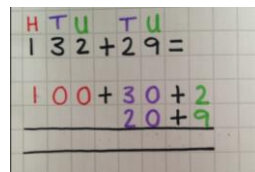 H T U T U
1 3 2 + 2 9 =
1 0 0 + 3 0 + 2
2 0 + 9